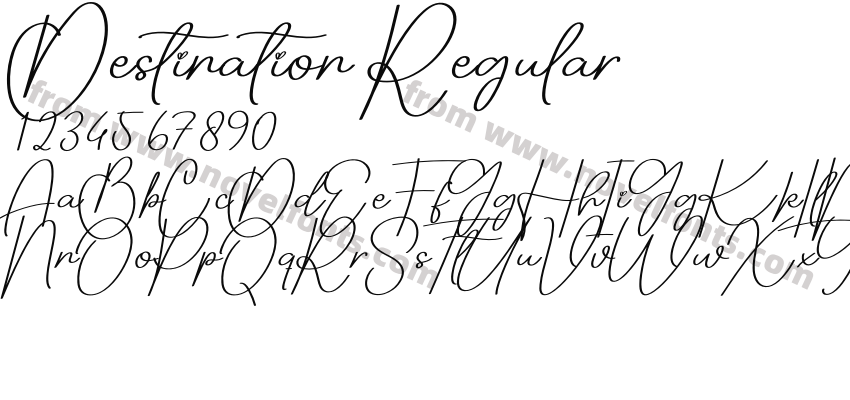 Destination Regular
1234567890
AaBbCcDdEeFfGgHhIiJjKkLl
NnOoPpQqRrSsTtUuVvWwXx
from www.novelfonts.com
from www.novelfonts.com